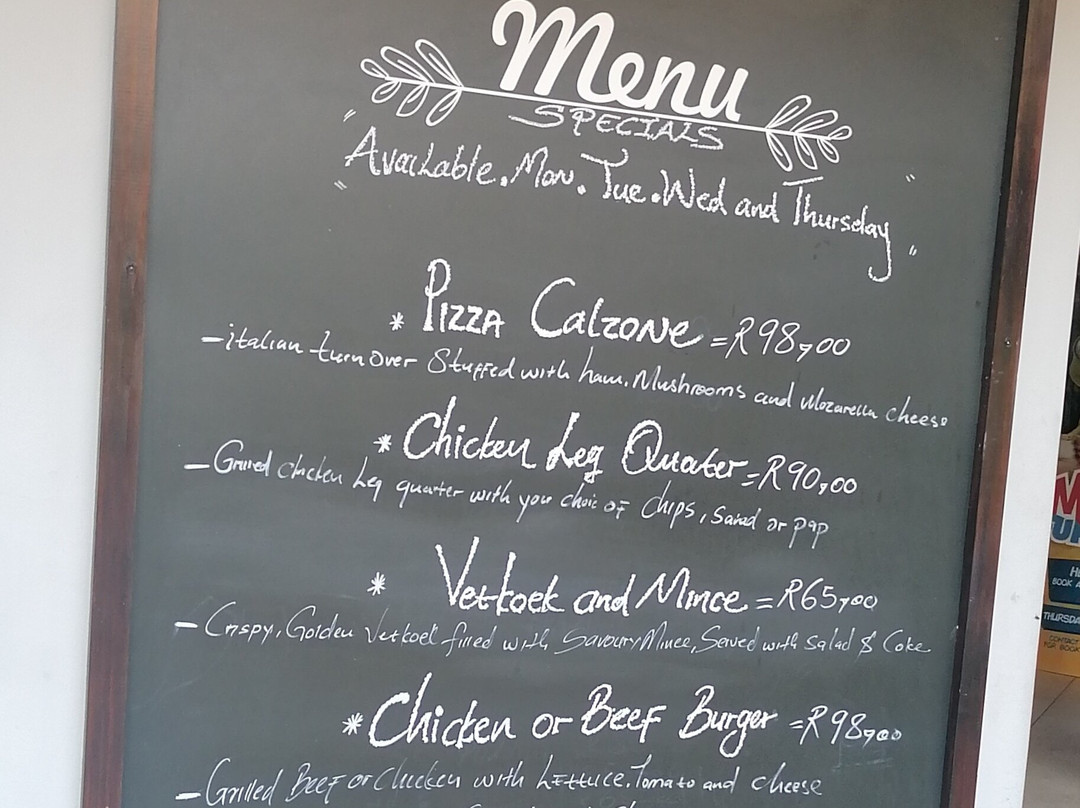 Menu
SPECIALS
"Available. Mon. Tue. Wed and Thursday"
* Pizza Calzone = R98,00
- italian turn over Stuffed with ham. Mushrooms and Mozarella cheese
* Chicken Leg Quater = R90,00
- Grilled chicken Leg quarter with your choic of Chips, Salad or pap
* Vetkoek and Mince = R65,00
- Crispy, Golden Vetkoek filled with Savoury Mince, Served with Salad & Coke
* Chicken or Beef Burger = R98,00
- Grilled Beef or Chicken with Lettuce. Tomato and cheese
THURSDA